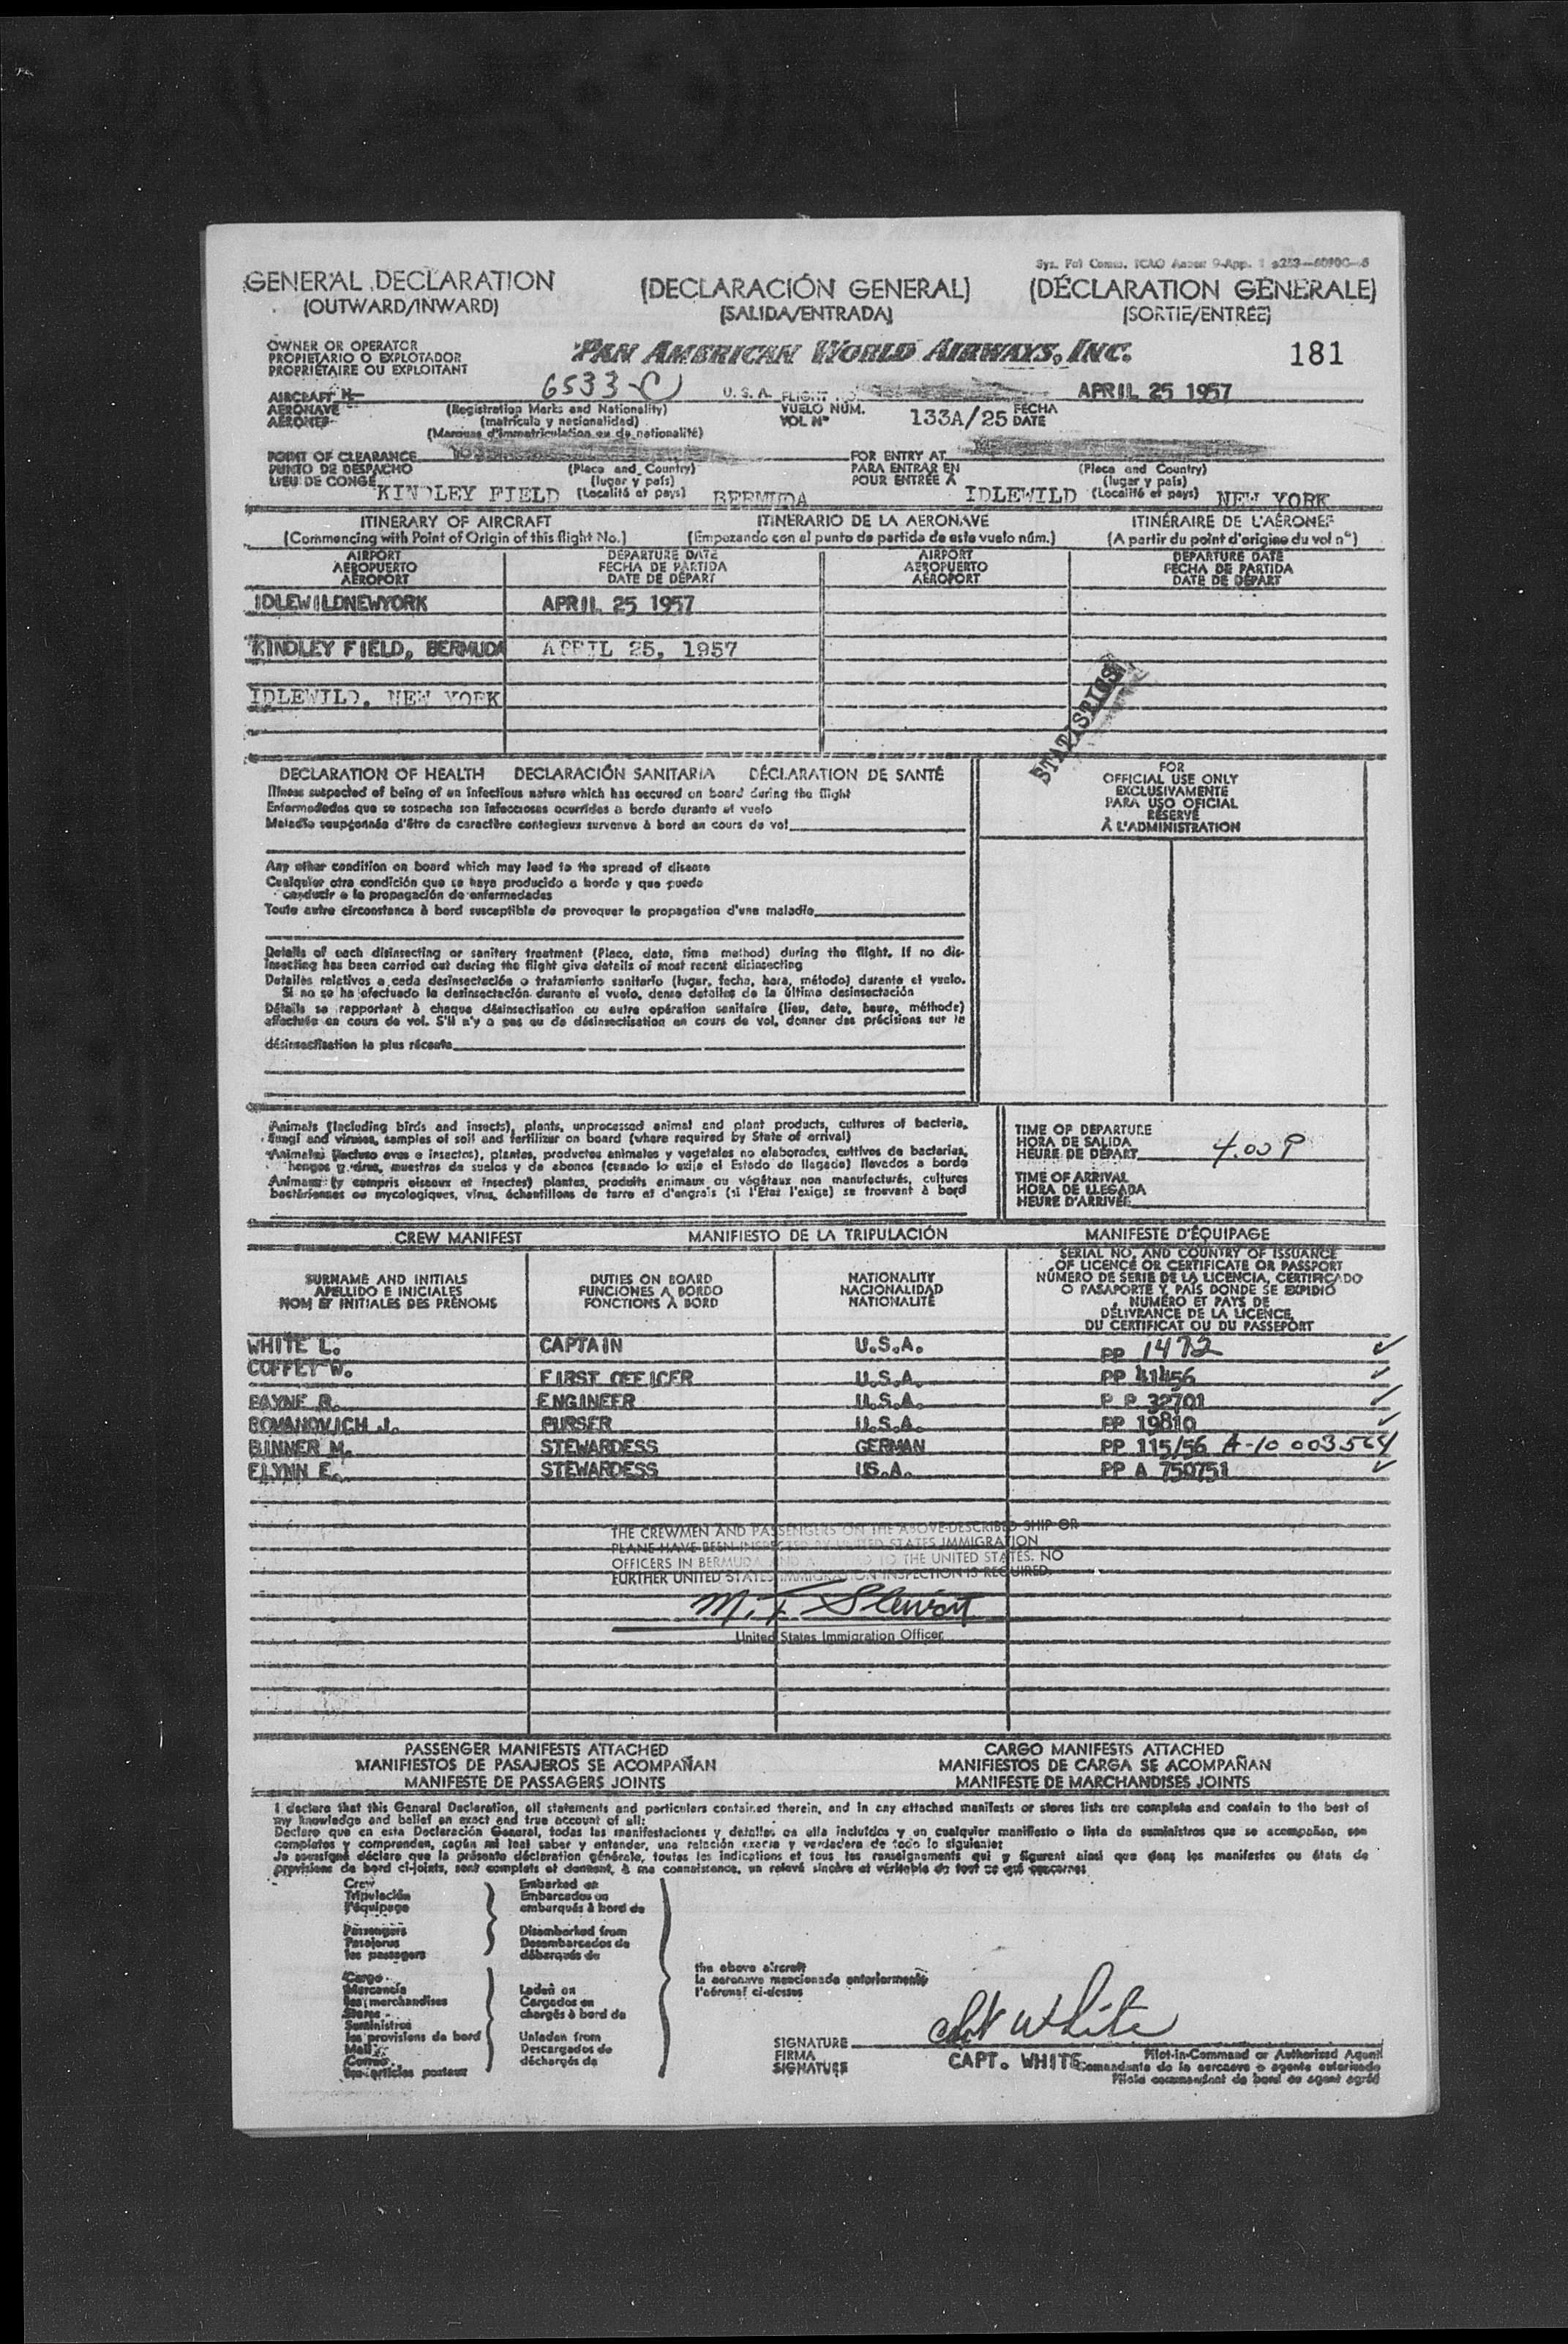 Syz. Fol Comm. ICAO Annex 9-App. 1
GENERAL DECLARATION (DECLARACIÓN GENERAL) (DÉCLARATION GÉNÉRALE)
(OUTWARD/INWARD) (SALIDA/ENTRADA) (SORTIE/ENTRÉE)
OWNER OR OPERATOR
PROPIETARIO O EXPLOTADOR
PROPRIÉTAIRE OU EXPLOITANT
PAN AMERICAN WORLD AIRWAYS, INC. 181
AIRCRAFT N- 6533-C U.S.A. FLIGHT NO. APRIL 25 1957
AERONAVE (Registration Marks and Nationality) VUELO NÚM. 133A/25 FECHA
AÉRONEF (matrícula y nacionalidad) VOL Nº DATE
(Marques d'immatriculation ou de nationalité)
POINT OF CLEARANCE FOR ENTRY AT
PUNTO DE DESPACHO (Place and Country) PARA ENTRAR EN (Place and Country)
LIEU DE CONGÉ (lugar y país) POUR ENTRÉE À (lugar y país)
KINDLEY FIELD (Localité et pays) BERMUDA IDLEWILD (Localité et pays) NEW YORK
ITINERARY OF AIRCRAFT ITINERARIO DE LA AERONAVE ITINÉRAIRE DE L'AÉRONEF
(Commencing with Point of Origin of this flight No.) (Empezando con el punto de partida de este vuelo núm.) (A partir du point d'origine du vol nº)
AIRPORT DEPARTURE DATE AIRPORT DEPARTURE DATE
AEROPUERTO FECHA DE PARTIDA AEROPUERTO FECHA DE PARTIDA
AÉROPORT DATE DE DÉPART AÉROPORT DATE DE DÉPART
IDLEWILDNEWYORK APRIL 25 1957
KINDLEY FIELD, BERMUDA APRIL 25, 1957
IDLEWILD, NEW YORK
STATISTICS
DECLARATION OF HEALTH DECLARACIÓN SANITARIA DÉCLARATION DE SANTÉ
Illness suspected of being of an infectious nature which has occured on board during the flight
Enfermedades que se sospecha son infecciosas ocurridas a bordo durante el vuelo
Maladie soupçonnée d'être de caractère contagieux survenue à bord en cours de vol
FOR
OFFICIAL USE ONLY
EXCLUSIVAMENTE
PARA USO OFICIAL
RÉSERVÉ
À L'ADMINISTRATION
Any other condition on board which may lead to the spread of disease
Cualquier otra condición que se haya producido a bordo y que puede
conducir a la propagación de enfermedades
Toute autre circonstance à bord susceptible de provoquer la propagation d'une maladie
Details of each disinsecting or sanitary treatment (Place, date, time method) during the flight. If no dis-
insecting has been carried out during the flight give details of most recent disinsecting
Detalles relativos a cada desinsectación o tratamiento sanitario (lugar, fecha, hora, método) durante el vuelo.
Si no se ha efectuado la desinsectación durante el vuelo, dense detalles de la última desinsectación
Détails se rapportant à chaque désinsectisation ou autre opération sanitaire (lieu, date, heure, méthode)
effectuée en cours de vol. S'il n'y a pas eu de désinsectisation en cours de vol, donner des précisions sur la
désinsectisation la plus récente
Animals (including birds and insects), plants, unprocessed animal and plant products, cultures of bacteria,
fungi and viruses, samples of soil and fertilizer on board (where required by State of arrival)
Animales (incluso aves e insectos), plantas, productos animales y vegetales no elaborados, cultivos de bacterias,
hongos y virus, muestras de suelos y de abonos (cuando lo exija el Estado de llegada) llevados a bordo
Animaux (y compris oiseaux et insectes) plantes, produits animaux ou végétaux non manufacturés, cultures
bactériennes ou mycologiques, virus, échantillons de terre et d'engrais (si l'Etat l'exige) se trouvant à bord
TIME OF DEPARTURE
HORA DE SALIDA
HEURE DE DÉPART 4.00 P
TIME OF ARRIVAL
HORA DE LLEGADA
HEURE D'ARRIVÉE
CREW MANIFEST MANIFIESTO DE LA TRIPULACIÓN MANIFESTE D'ÉQUIPAGE
SURNAME AND INITIALS
APELLIDO E INICIALES
NOM ET INITIALES DES PRÉNOMS
DUTIES ON BOARD
FUNCIONES A BORDO
FONCTIONS À BORD
NATIONALITY
NACIONALIDAD
NATIONALITÉ
SERIAL NO. AND COUNTRY OF ISSUANCE
OF LICENCE OR CERTIFICATE OR PASSPORT
NÚMERO DE SERIE DE LA LICENCIA, CERTIFICADO
O PASAPORTE Y PAÍS DONDE SE EXPIDIÓ
NUMÉRO ET PAYS DE
DÉLIVRANCE DE LA LICENCE,
DU CERTIFICAT OU DU PASSEPORT
WHITE L. CAPTAIN U.S.A. PP 1472 ✓
COFFEY W. FIRST OFFICER U.S.A. PP 41456 ✓
PAYNE R. ENGINEER U.S.A. P P 32701 ✓
ROMANOVICH J. PURSER U.S.A. PP 19810 ✓
BINNER M. STEWARDESS GERMAN PP 115/56 A-10 003564
FLYNN E. STEWARDESS US.A. PP A 750751 ✓
THE CREWMEN AND PASSENGERS ON THE ABOVE-DESCRIBED SHIP OR
PLANE HAVE BEEN INSPECTED BY UNITED STATES IMMIGRATION
OFFICERS IN BERMUDA AND ADMITTED TO THE UNITED STATES. NO
FURTHER UNITED STATES IMMIGRATION INSPECTION IS REQUIRED.
M. F. Stewart
United States Immigration Officer
PASSENGER MANIFESTS ATTACHED CARGO MANIFESTS ATTACHED
MANIFIESTOS DE PASAJEROS SE ACOMPAÑAN MANIFIESTOS DE CARGA SE ACOMPAÑAN
MANIFESTE DE PASSAGERS JOINTS MANIFESTE DE MARCHANDISES JOINTS
I declare that this General Declaration, all statements and particulars contained therein, and in any attached manifests or stores lists are complete and contain to the best of
my knowledge and belief an exact and true account of all:
Declaro que en esta Declaración General, todas las manifestaciones y detalles en ella incluídos y en cualquier manifiesto o lista de suministros que se acompañan, son
completos y comprenden, según mi leal saber y entender, una relación exacta y verdadera de todo lo siguiente:
Je soussigné déclare que la présente déclaration générale, toutes les indications et tous les renseignements qui y figurent ainsi que dans les manifestes ou états de
provisions de bord ci-joints, sont complets et donnent, à ma connaissance, un relevé sincère et véritable de tout ce qui concerne:
Crew
Tripulación
l'équipage
Passengers
Pasajeros
les passagers
Cargo
Mercancía
les merchandises
Stores
Suministros
les provisions de bord
Mail
Correo
les articles postaux
Embarked on
Embarcados en
embarqués à bord de
Disembarked from
Desembarcados de
débarqués de
Laden on
Cargados en
chargés à bord de
Unladen from
Descargados de
déchargés de
the above aircraft
la aeronave mencionada anteriormente
l'aéronef ci-dessus
SIGNATURE
FIRMA
SIGNATURE
White
CAPT. WHITE
Pilot-in-Command or Authorized Agent
Comandante de la aeronave o agente autorizado
Pilote commandant de bord ou agent agréé